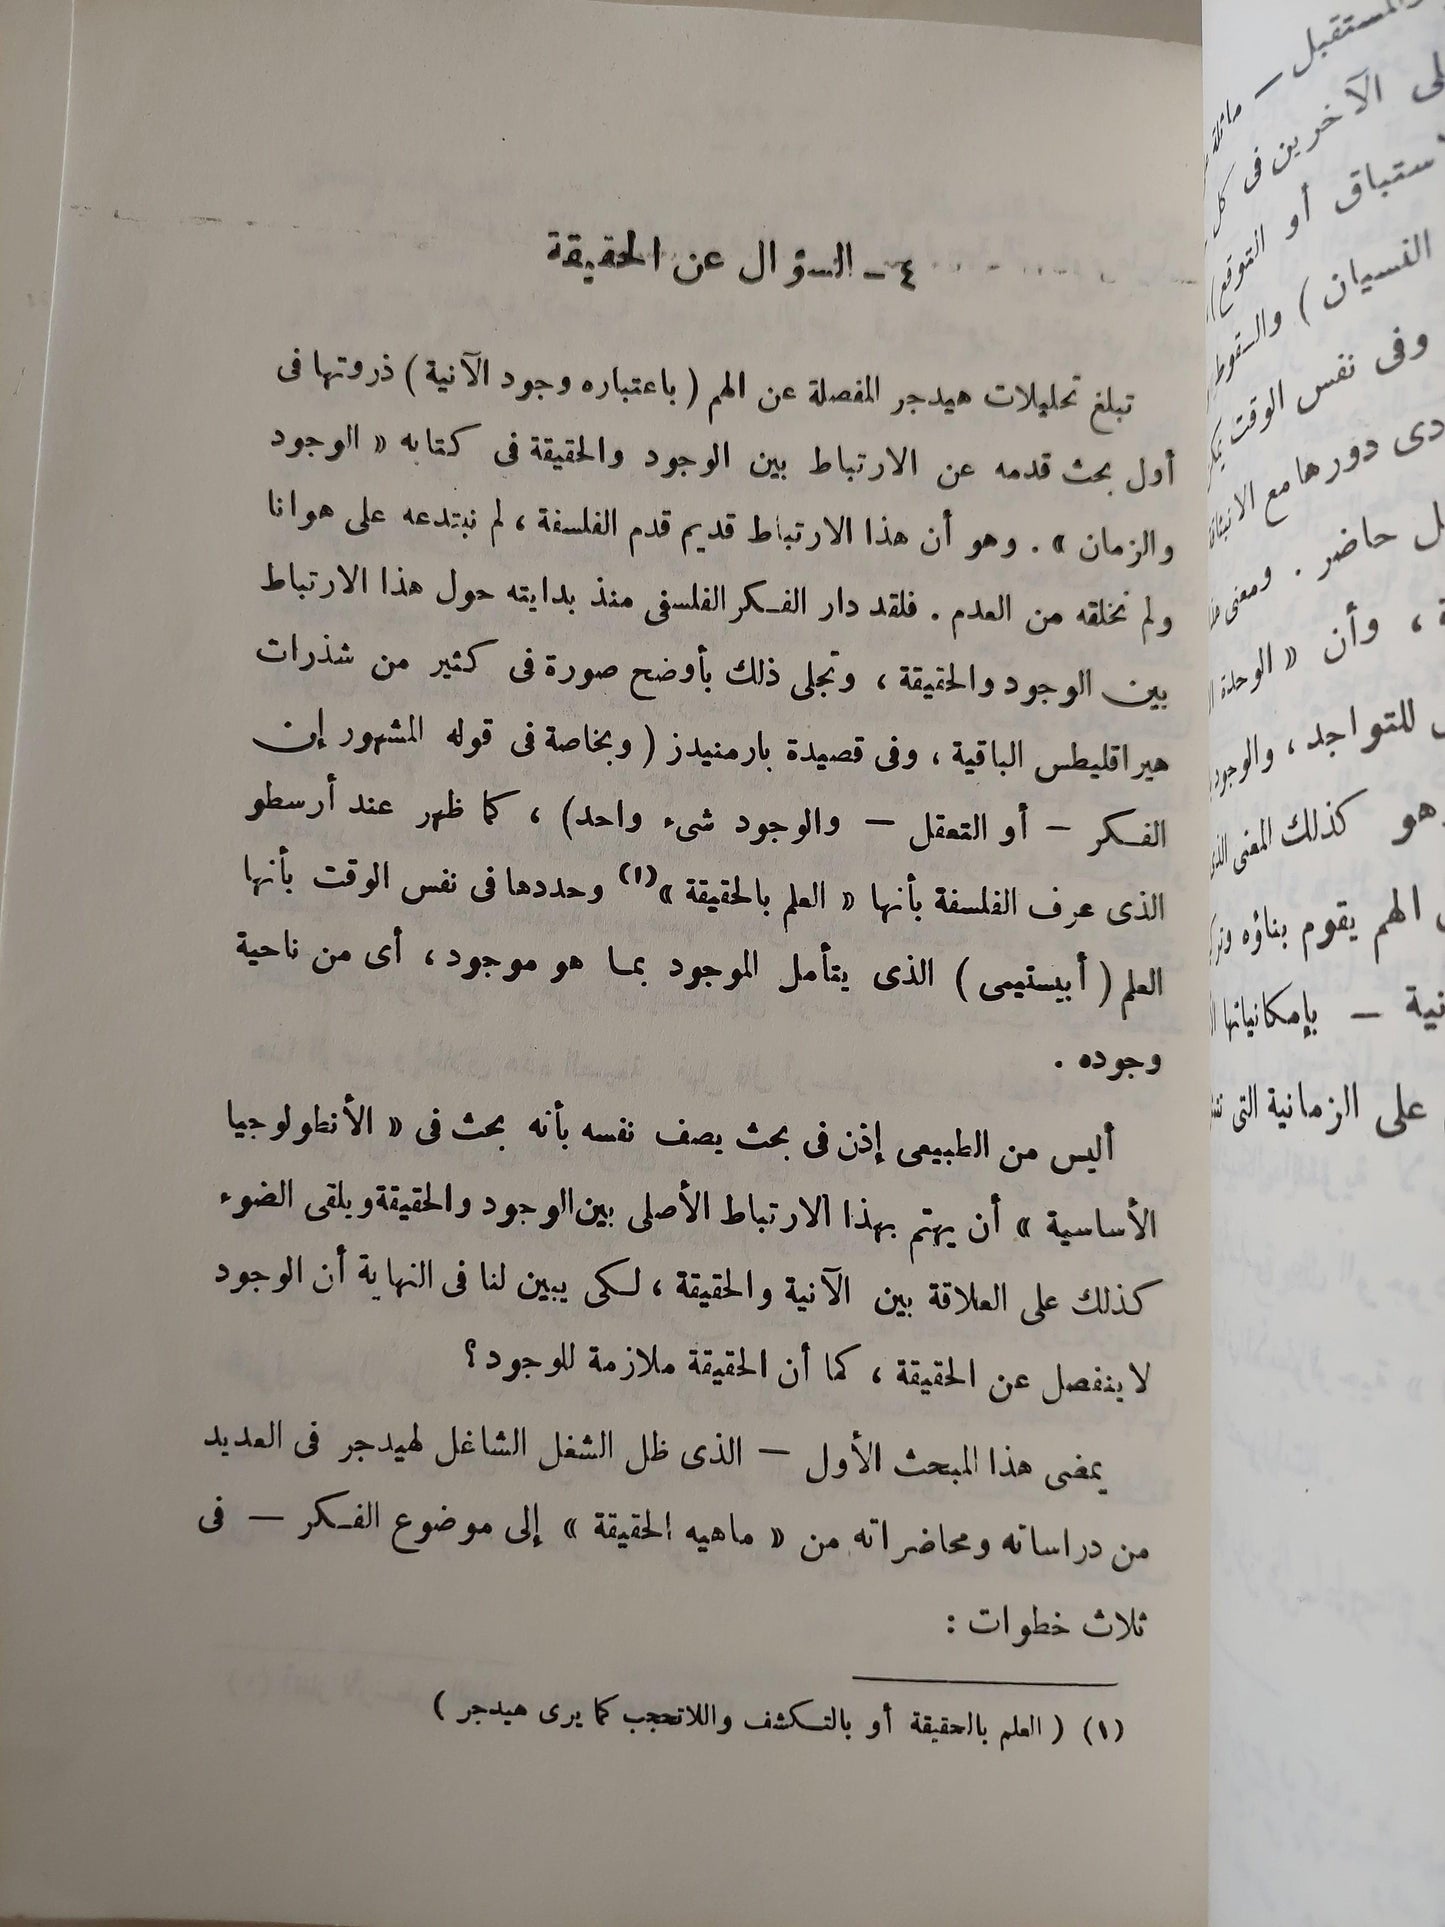 ٤ - السؤال عن الحقيقة
تبلغ تحليلات هيدجر المفصلة عن الهم ( باعتباره وجود الآنية ) ذروتها فى
أول بحث قدمه عن الارتباط بين الوجود والحقيقة فى كتابه « الوجود
والزمان » . وهو أن هذا الارتباط قديم قدم الفلسفة ، لم نبتدعه على هوانا
ولم نخلقه من العدم . فلقد دار الفكر الفلسفى منذ بدايته حول هذا الارتباط
بين الوجود والحقيقة ، وتجلى ذلك بأوضح صورة فى كثير من شذرات
هيراقليطس الباقية ، وفى قصيدة بارمنيدز ( وبخاصة فى قوله المشهور إن
الفكر – أو التعقل – والوجود شىء واحد) ، كما ظهر عند أرسطو
الذى عرف الفلسفة بأنها « العلم بالحقيقة »(١) وحددها فى نفس الوقت بأنها
العلم ( أبيستيمى ) الذى يتأمل الموجود بما هو موجود ، أى من ناحية
وجوده .
أليس من الطبيعى إذن فى بحث يصف نفسه بأنه بحث فى « الأنطولوجيا
الأساسية » أن يهتم بهذا الارتباط الأصلى بين الوجود والحقيقة ويلقى الضوء
كذلك على العلاقة بين الآنية والحقيقة ، لكى يبين لنا فى النهاية أن الوجود
لا ينفصل عن الحقيقة ، كما أن الحقيقة ملازمة للوجود ؟
يمضى هذا المبحث الأول – الذى ظل الشغل الشاغل لهيدجر فى العديد
من دراساته ومحاضراته من « ماهيه الحقيقة » إلى موضوع الفكر – فى
ثلاث خطوات :
(١) ( العلم بالحقيقة أو بالتكشف واللاتحجب كما يرى هيدجر )
المستقبل – ماثلة
الآخرين فى كل
أو التوقع )
النسيان ) والسقوط
وفى نفس الوقت
دورها مع
حاضر . ومعنى
، وأن « الوحدة
للتواجد ، والوجود
كذلك المعنى الذى
الهم يقوم بناؤه
– بإمكانياتها
على الزمانية التى